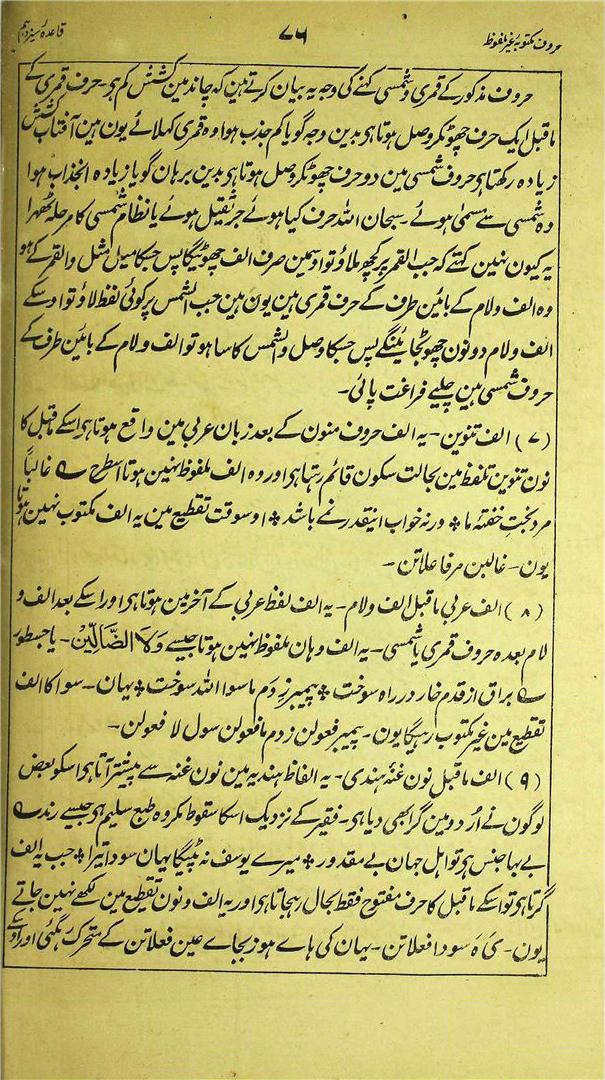 حروف مکتوبۂ غیر ملفوظ ۷۶ قاعدۂ سیزدہم
حروف مذکور کے قمری و شمسی کہنے کی وجہ یہ بیان کرتے ہین کہ چاند مین کشش کم ہی۔ حرف قمری کے
ماقبل ایک حرف چھوٹکر وصل ہوتا ہی بدین وجہ گویا کم جذب ہوا وہ قمری کہلائے یون ہین آفتاب کشش
زیادہ رکھتا ہی حروف شمسی مین دو حرف چھوٹکر وصل ہوتا ہی بدین برہان گویا زیادہ انجذاب ہوا
وہ شمسی سے مسمیٰ ہوئے۔ سبحان اللہ حرف کیا ہوئے جر ثقیل ہوئے یا نظام شمسی کا مرحلہ ٹھہرا
یہ کیون نہین کہتے کہ جب القمر پر کچھ ملاؤ تو اوسمین صرف الف چھوٹیگا پس جسکا میل مثل والقمر کے ہو
وہ الف و لام کے بائین طرف کے حرف قمری ہین یون ہین جب الشمس پر کوئی لفظ لاؤ تو اوسکے
الف و لام دونون چھوٹ جائینگے پس جسکا وصل والشمس کا سا ہو تو الف و لام کے بائین طرف کے
حروف شمسی ہین چلیے فراغت پائی۔
(۷) الف تنوین۔ یہ الف حروف منون کے بعد زبان عربی مین واقع ہوتا ہی اسکے ماقبل کا
نون تنوین تلفظ مین بحالت سکون قائم رہتا ہی اور وہ الف ملفوظ نہین ہوتا اسطرح ؎ غالباً
مرد بخت خفتہ ما ٭ ورنہ خواب اینقدر نمے باشد ٭ اوسوقت تقطیع مین یہ الف مکتوب نہین ہوتا
یون۔ غالبن مر فاعلاتن۔
(۸) الف عربی ماقبل الف و لام۔ یہ الف لفظ عربی کے آخر مین ہوتا ہی اور اسکے بعد الف و
لام بعدہ حروف قمری یا شمسی۔ یہ الف وہان ملفوظ نہین ہوتا جیسے وَلَا الضَّالِّیْنَ۔ یا جسطور
؎ براق از قدم خار در راہ سوخت ٭ پیمبر ز دم ماسوا اللہ سوخت ٭ یہان۔ سوا کا الف
تقطیع مین غیر مکتوب رہیگا یون۔ پیمبر فعولن ز دم ما فعولن سول لا فعولن۔
(۹) الف ماقبل نون غنۂ ہندی۔ یہ الفاظ ہندیہ مین نون غنہ سے پیشتر آتا ہی اسکو بعض
لوگون نے اُردو مین گرا بھی دیا ہی۔ فقیر کے نزدیک اسکا سقوط مکروہ طبع سلیم ہی جیسے رند ؎
بے بہا جنس ہی تو اہل جہان بے مقدور ٭ میرے یوسف نہ پٹیگا یہان سودا تیرا ٭ جب یہ الف
گرتا ہی تو اسکے ماقبل کا حرف مفتوح فقط بحال رہجاتا ہی اور یہ الف و نون تقطیع مین لکھے نہین جاتے
یون۔ یَ ہَ سودا فعلاتن۔ یہان کی ہاے ہوز بجاے عین فعلاتن کے متحرک رہگئی اور اوسکے